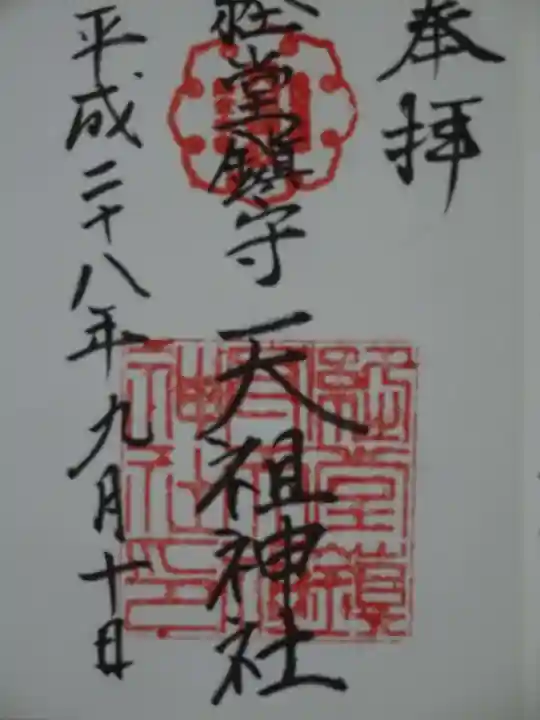 奉拝
経堂鎮守
天祖神社
平成二十八年九月十日